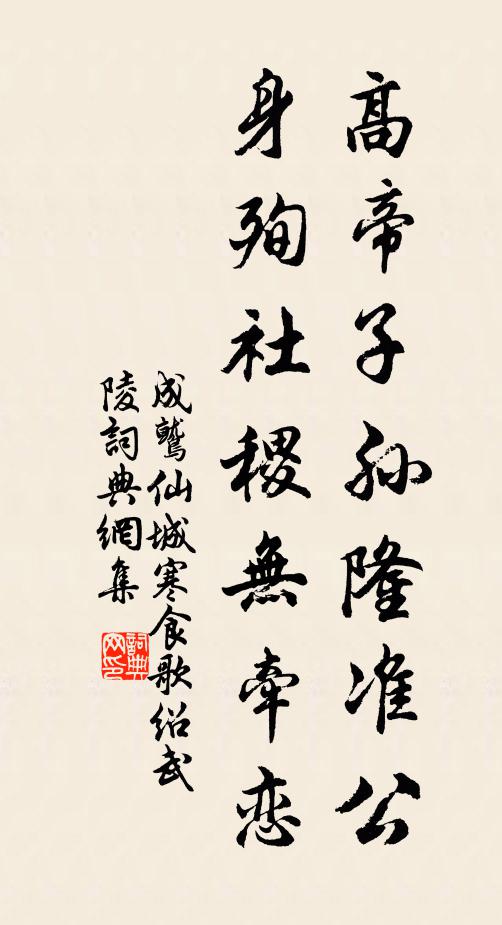 高帝子孙隆准公
身殉社稷無牽恋
成鷲仙城寒食歌绍武
陵詞典網集
詞典网印